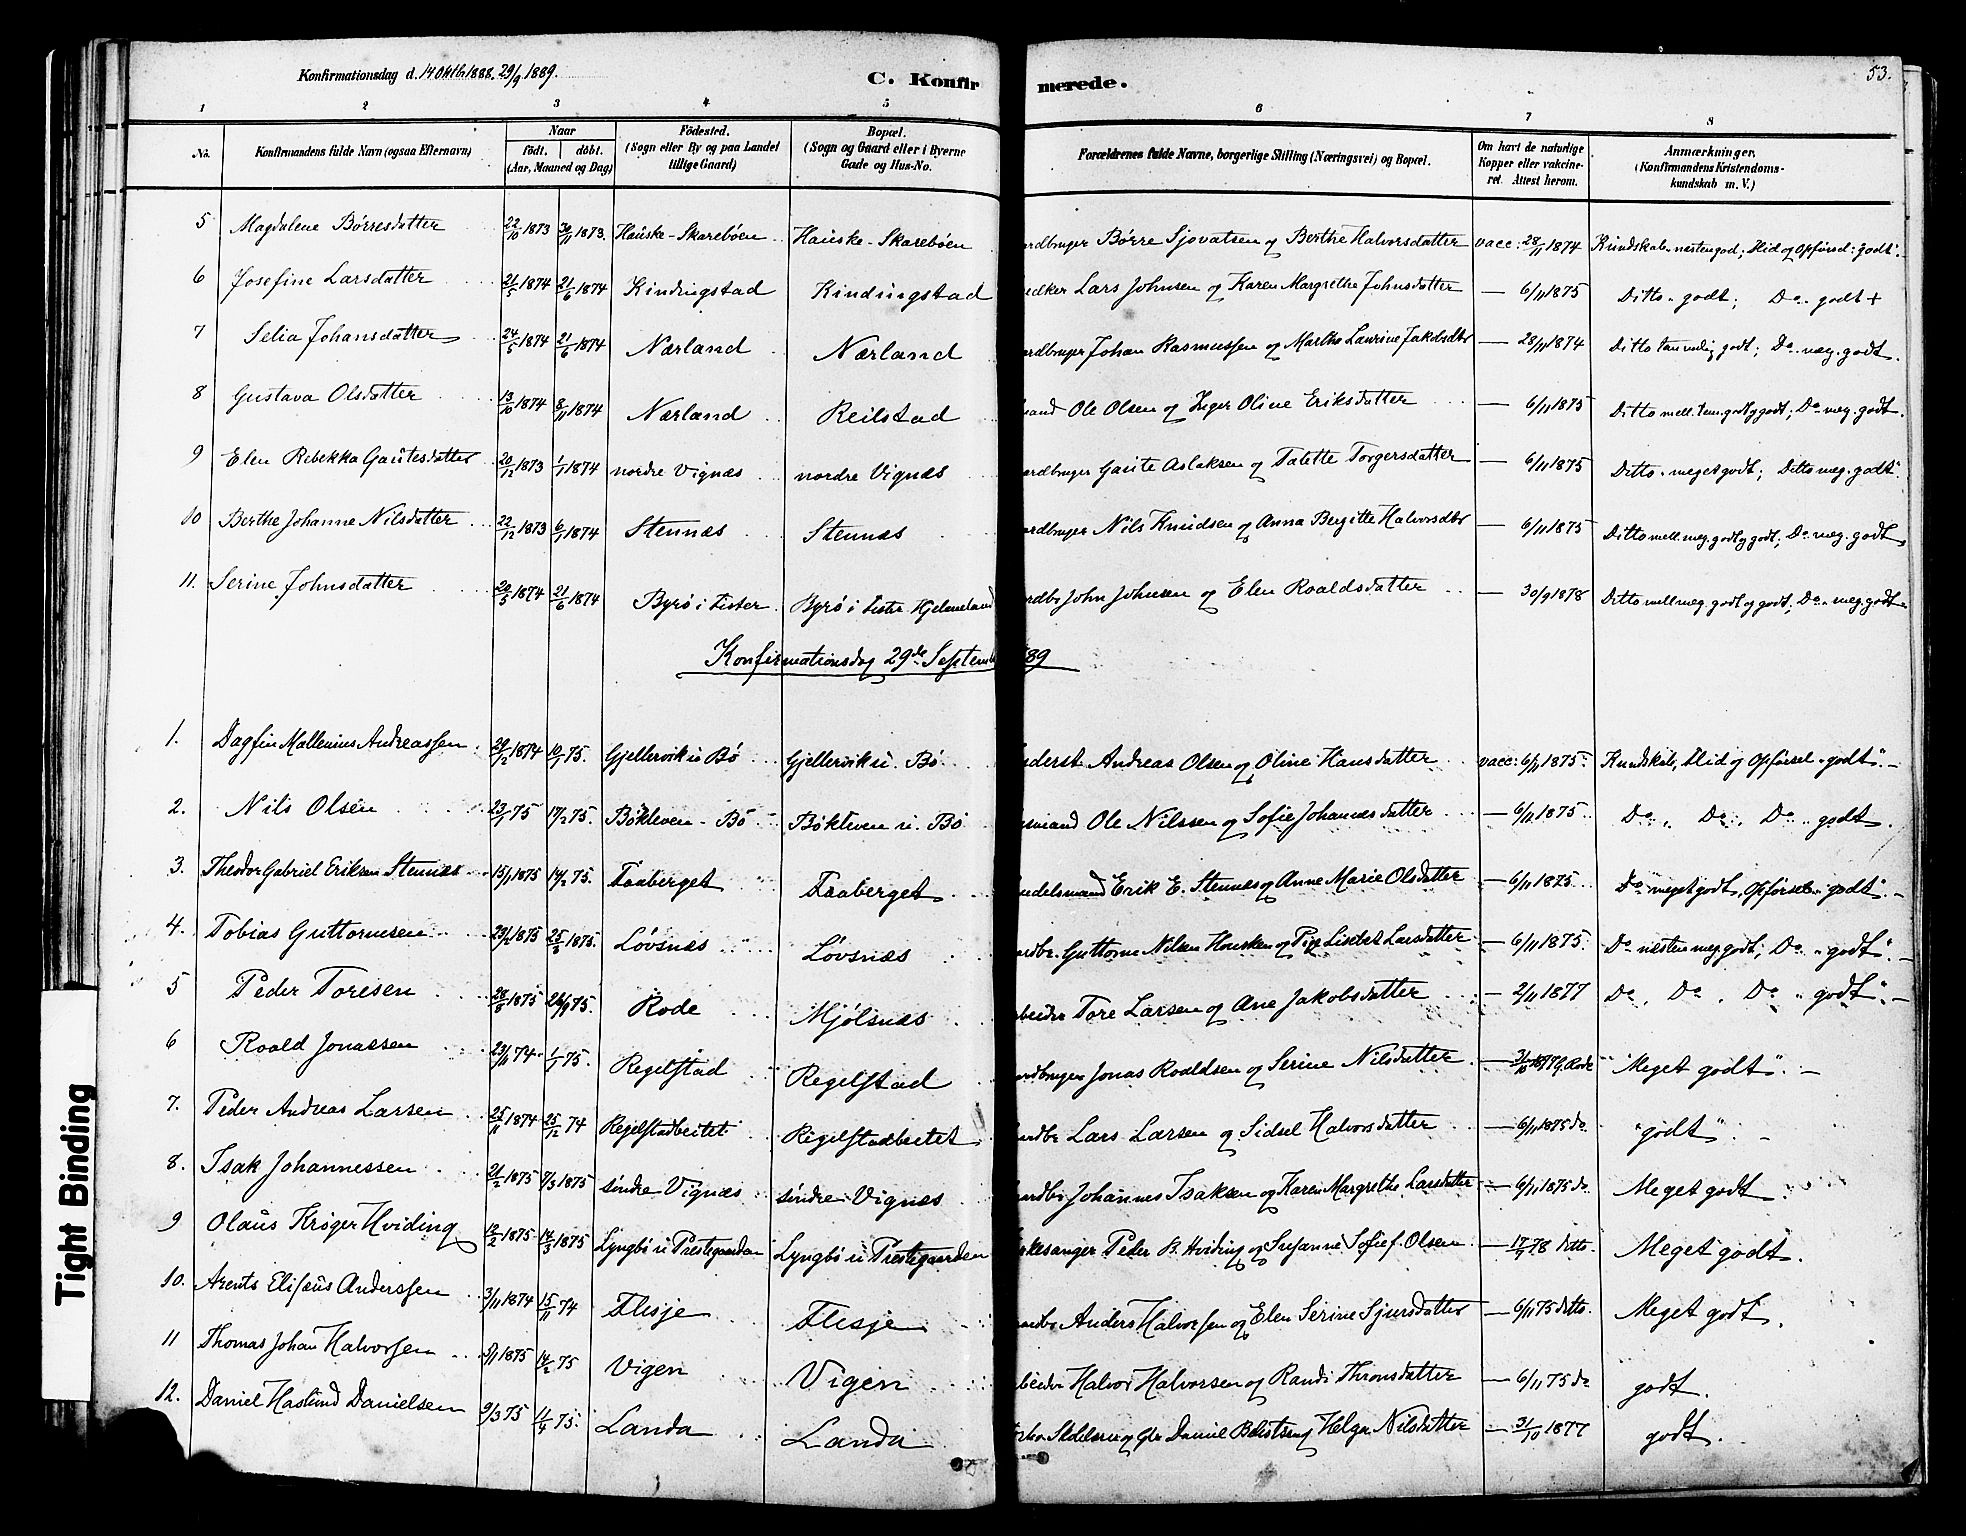 Konfirmationsdag d. 14 Oktb. 1888. 29/9 1889. C. Konfirmerede. 53.
1 2 3 4 5 6 7 8
No. Konfirmandens fulde Navn (ogsaa Efternavn) Naar födt. döbt. (Aar, Maaned og Dag) Födested. (Sogn eller By og paa Landet tillige Gaard) Bopæl. (Sogn og Gaard eller i Byerne Gade og Hus-No. Forældrenes fulde Navne, borgerlige Stilling (Næringsvei) og Bopæl. Om havt de naturlige Kopper eller vakcineret. Attest herom. Anmærkninger, (Konfirmandens Kristendomskundskab m. V.)
5 Magdalene Børresdatter 22/10 1873 30/11 1873. Hauske-Skarebøen Hauske-Skarebøen ardbruger Børre Sjovatsen og Berthe Halvorsdatter vacc: 28/11 1874 Kundskab: næsten god; Flid og Opførsel: godt".
6 Josefine Larsdatter 21/5 1874 21/6 1874 Kindingstad Kindingstad edker Lars Johnsen og Karen Margrethe Johnsdatter — 6/11 1875 Ditto godt; Do godt +
7 Selia Johansdatter 24/5 1874 21/6 1874 Nærland Nærland ardbruger Johan Rasmussen og Marthe Laurine Jakobsdtr — 28/11 1874 Ditto temmelig godt; Do meg. godt.
8 Gustava Olsdatter 13/10 1874 8/11 1874 Nærland Reilstad mand Ole Olsen og Inger Oline Eriksdatter — 6/11 1875 Ditto mell. tem. godt og godt; Do meg. godt.
9 Elen Rebekka Gautesdatter 20/12 1873 1/1 1874 nordre Vignæs nordre Vignæs ardbruger Gaute Aslaksen og Talette Torgersdatter — 6/11 1875 Ditto meget godt; Ditto meg. godt"
10 Berthe Johanne Nilsdatter 22/12 1873 6/1 1874 Stennæs Stennæs ardbruger Nils Knudsen og Anna Bergitte Halvorsdtr — 6/11 1875 Ditto mell. meg. godt og godt; Do meg. godt
11. Serine Johnsdatter 20/5 1874 21/6 1874 Byrø i Fister Byrø i Fister Hjelmeland ardbr John Johnsen og Elen Roaldsdatter — 30/9 1878 Ditto mell meg. godt og godt; Do meg. godt
Konfirmationsdag 29de Septemb 89
1. Dagfin Mallenius Andreassen 29/12 1874 10/1 75. Gjellervik u. Bø Gjellervik u. Bø nderst Andreas Olsen og Oline Hansdatter vacc: 6/11 1875 Kundskab, Flid og Opførsel "godt".
2. Nils Olsen 23/1 75 14/2 75. Bökleven - Bö Bökleven u. Bö smand Ole Nilssen og Sofie Johannesdatter — 6/11 1875 Do, Do, Do godt.
3. Theodor Gabriel Eriksen Stennæs 15/1 1875 14/2 75. Faaberget Faaberget ndelsmand Erik E. Stennes og Anne Marie Olsdatter — 6/11 1875 Do meget godt, Opførsel "godt".
4. Tobias Guttormsen 1875 1875. Løvsnæs Løvsnæs rdbr. Guttorm Nilsen Housken og Lisebet Larsdatter — 6/11 1875. Do næsten meg. godt; Do "godt".
5 Peder Toresen 28/8 1875 26/9 75. Rode Mjølsnæs beider Tore Larsen og Ane Jakobsdatter — 2/11 1877 Do, Do, Do "godt".
6 Roald Jonassen 23/11 74 1/1 75. Regelstad Regelstad rdbruger Jonas Roaldsen og Serine Nilsdatter — 31/10 G. Rode "Meget godt".
7. Peder Andreas Larsen 25/11 1874 25/12 74 Regelstadbeitet Regelstadbeitet ardbr Lars Larsen og Sidsel Halvorsdatter — 6/11 1875 do "godt".
8. Isak Johannessen 21/2 1875 1875 søndre Vignæs søndre Vignæs ardbr Johannes Isaksen og Karen Margrethe Larsdatter — 6/11 1875 do Meget godt.
9 Olaus Krøger Hviding 12/2 1875 14/3 1875 Lyngbö u Prestegaarden Lyngbö u Prestegaarden rkesanger Peder B. Hviding og Susanne Sofie f. Olsen — 78 ditto. Meget godt.
10. Arents Elisæus Anderssen 3/11 1874 15/11 74 Flesje Flesje ardbr Anders Halvorsen og Elen Serine Sjursdatter — 6/11 75 ditto. Meget godt.
11 Thomas Johan Halvorsen 1875 14/2 75 Vigen Vigen beider Halvor Halvorsen og Randi Thronsdatter — 6/11 75 do godt.
12. Daniel Haslund Danielsen 9/3 75 11/4 75. Landa Landa Daniel og Helga Nilsdatter — 31/10 1877 godt.
Tight Binding